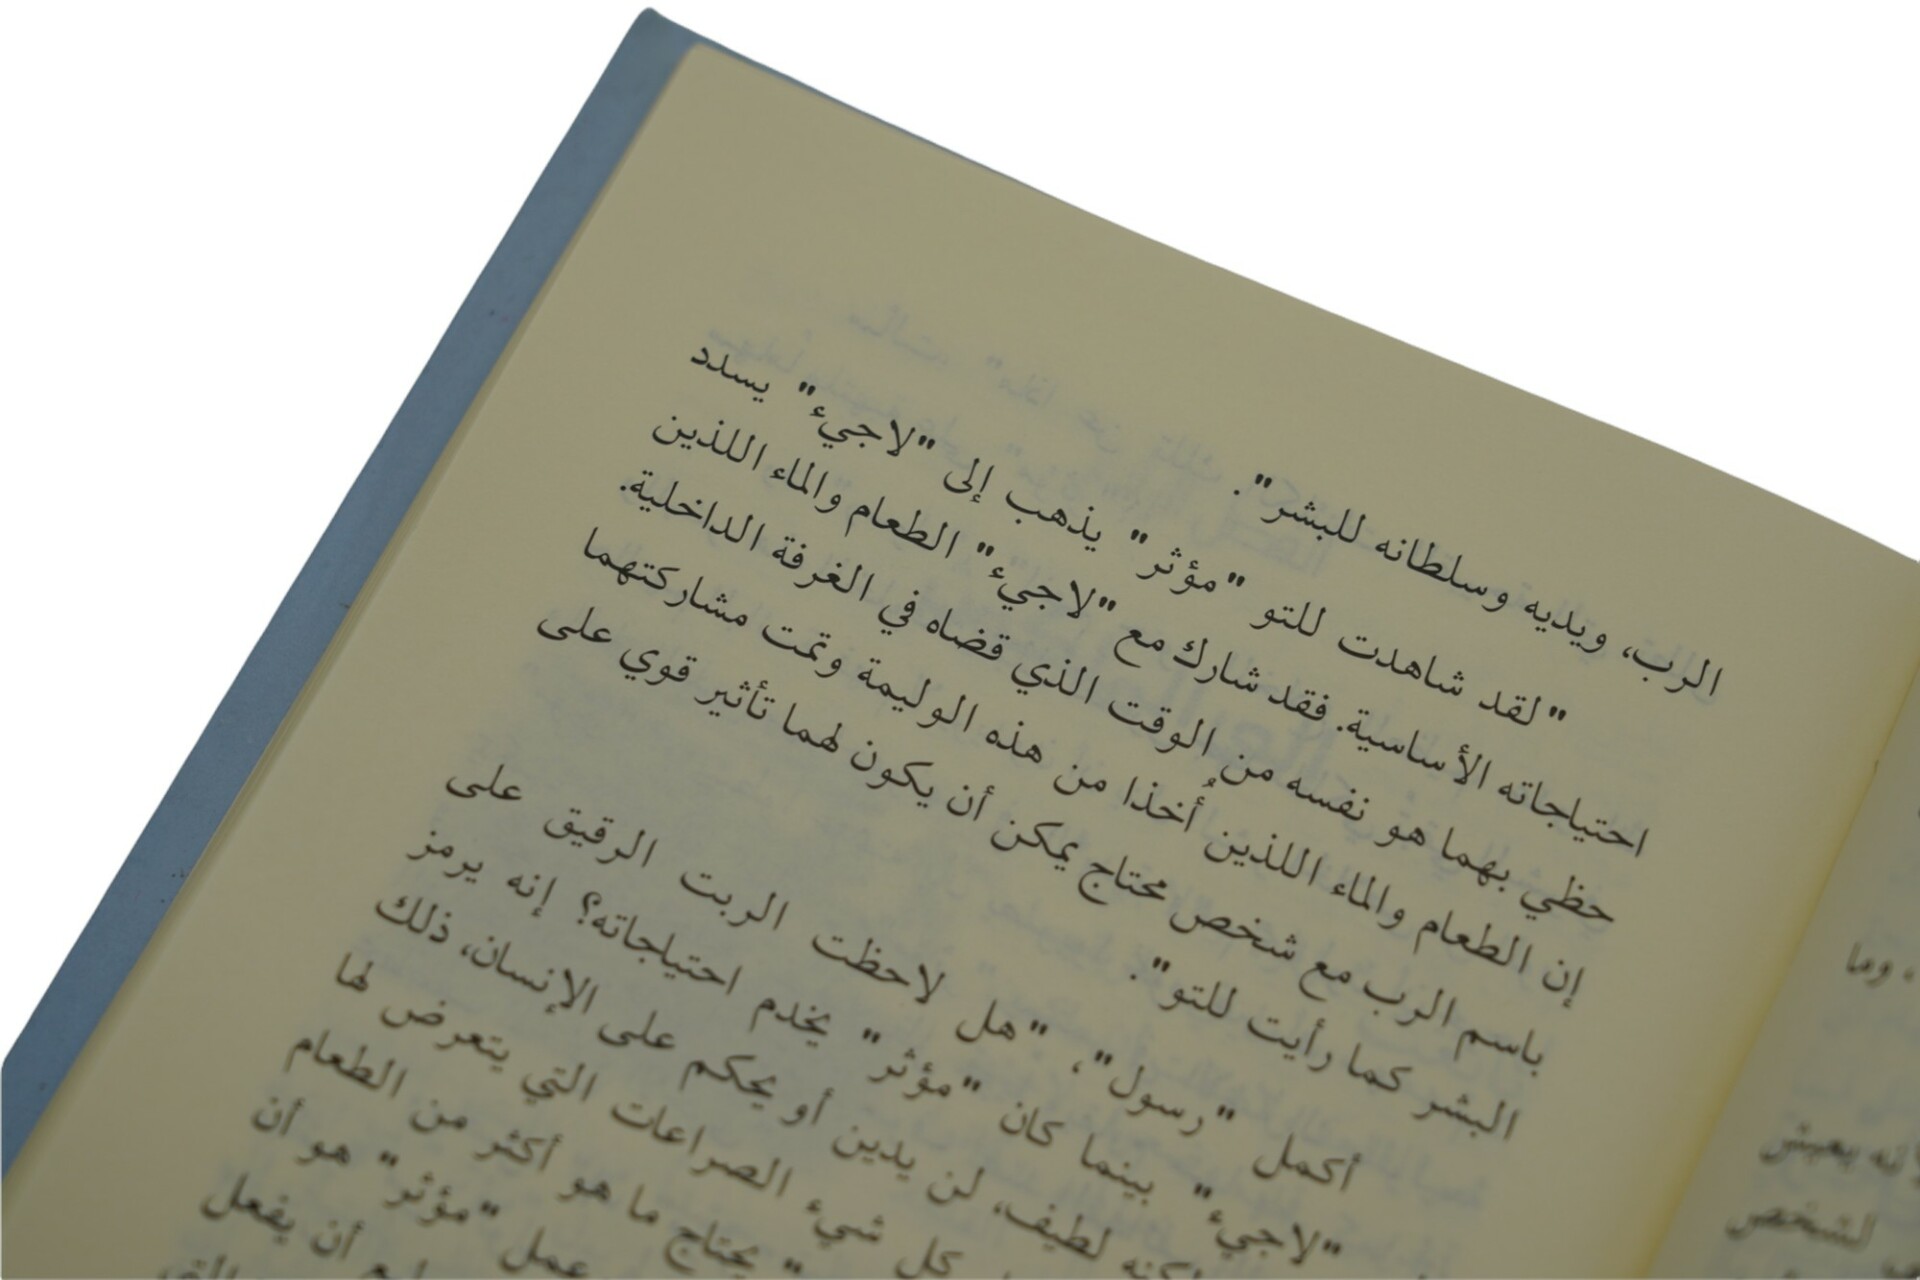 الرب، ويديه وسلطانه للبشر".
"لقد شاهدت للتو "مؤثر" يذهب إلى "لاجيء" يسدد
احتياجاته الأساسية. فقد شارك مع "لاجيء" الطعام والماء اللذين
حظي بهما هو نفسه من الوقت الذي قضاه في الغرفة الداخلية.
إن الطعام والماء اللذين أُخذا من هذه الوليمة وتمت مشاركتهما
باسم الرب مع شخص محتاج يمكن أن يكون لهما تأثير قوي على
البشر كما رأيت للتو".
أكمل "رسول"، "هل لاحظت الربت الرقيق على
"لاجيء" بينما كان "مؤثر" يخدم احتياجاته؟ إنه يرمز
لطيف، لن يدين أو يحكم على الإنسان، ذلك
كل شيء الصراعات التي يتعرض لها
يحتاج ما هو أكثر من الطعام
عمل "مؤثر" هو أن
أن يفعل
وما
يعيش
الشخص